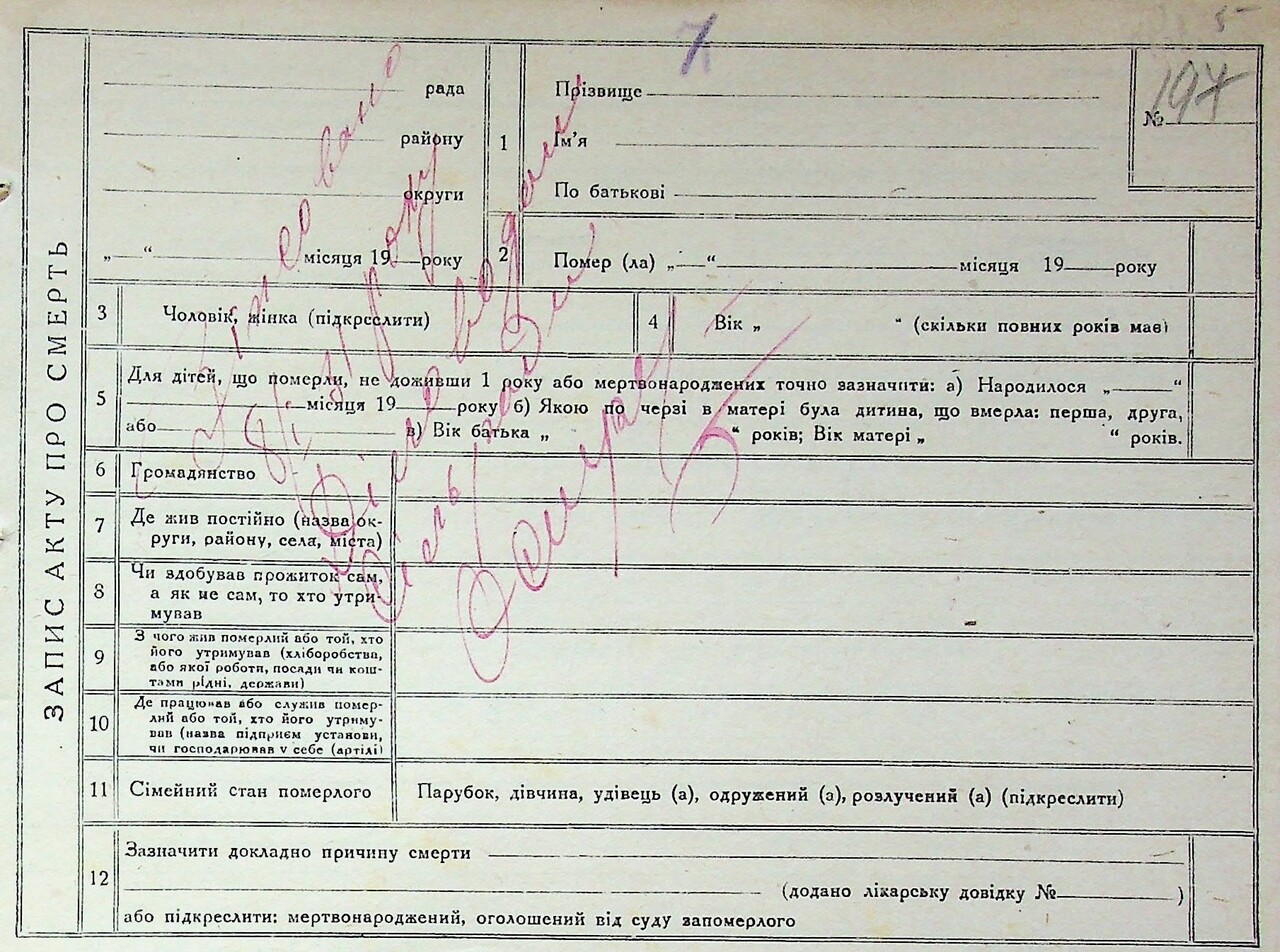 7
5
ЗАПИС АКТУ ПРО СМЕРТЬ
рада
району
округи
„ “ місяця 19 року
1
Прізвище
Ім'я
По батькові
№ 197
2
Помер (ла) „ “ місяця 19 року
3
Чоловік, жінка (підкреслити)
4
Вік „ “ (скільки повних років має)
5
Для дітей, що померли, не доживши 1 року або мертвонароджених точно зазначити: а) Народилося „ “
місяця 19 року б) Якою по черзі в матері була дитина, що вмерла: перша, друга,
або в) Вік батька „ “ років; Вік матері „ “ років.
6
Громадянство
7
Де жив постійно (назва ок-
руги, району, села, міста)
8
Чи здобував прожиток сам,
а як не сам, то хто утри-
мував
9
З чого жив померлий або той, хто
його утримував (хліборобства,
або якої роботи, посади чи кош-
тами рідні, держави)
10
Де працював або служив помер-
лий або той, хто його утриму-
вав (назва підприєм установи,
чи господарював у себе (артілі)
11
Сімейний стан померлого
Парубок, дівчина, удівець (а), одружений (а), розлучений (а) (підкреслити)
12
Зазначити докладно причину смерти
(додано лікарську довідку № )
або підкреслити: мертвонароджений, оголошений від суду запомерлого